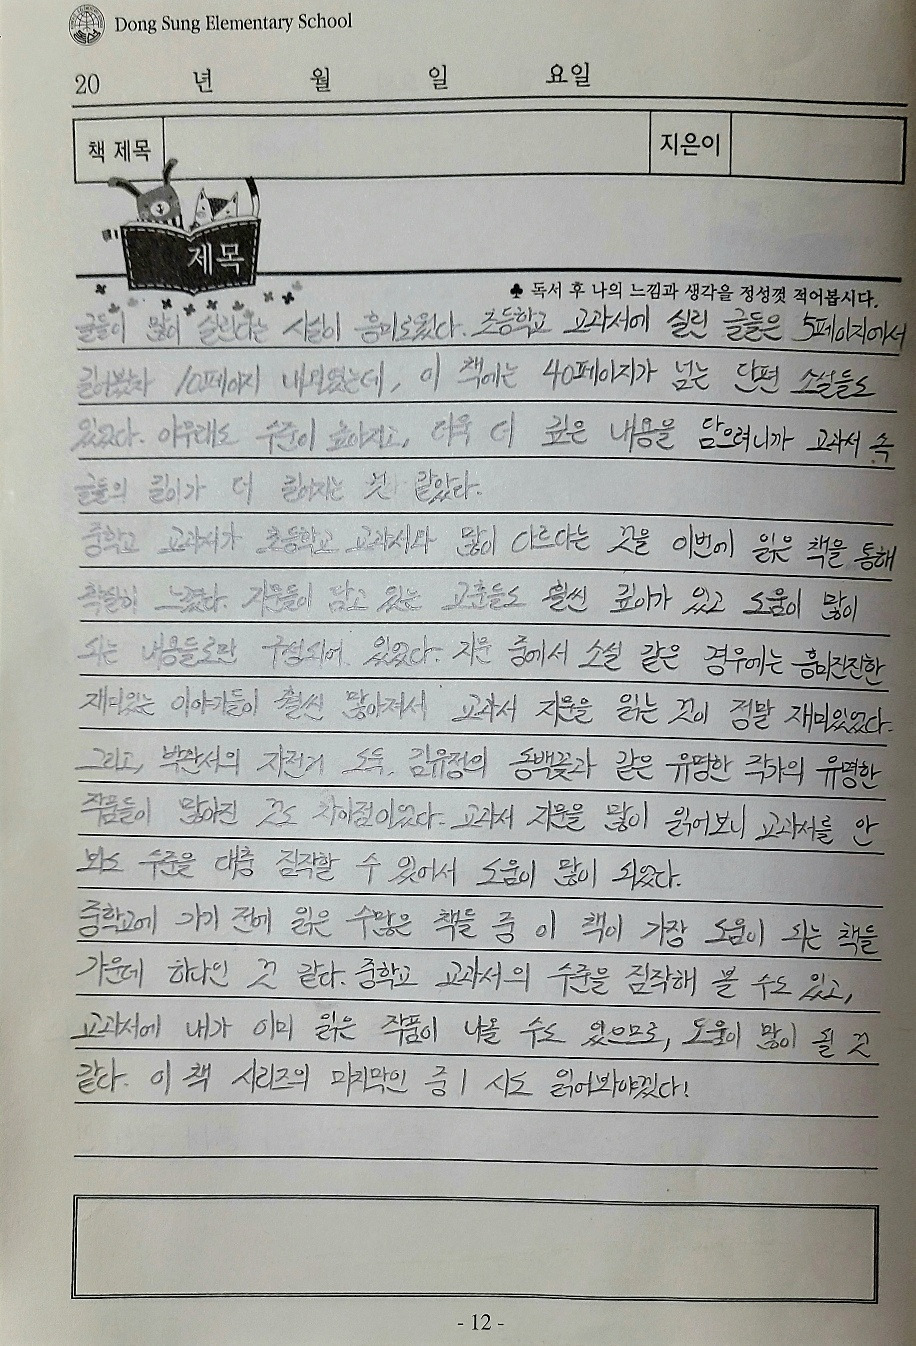 Dong Sung Elementary School
20 년 월 일 요일
책 제목 지은이
제목
♣ 독서 후 나의 느낌과 생각을 정성껏 적어봅시다.
글들이 많이 실린다는 사실이 흥미로웠다. 초등학교 교과서에 실린 글들은 5페이지에서
길어봤자 10페이지 내외였는데, 이 책에는 40페이지가 넘는 단편 소설들도
있었다. 아무래도 수준이 높아지고, 더욱 더 깊은 내용을 담으려니까 교과서 속
글들의 길이가 더 길어지는 것 같았다.
중학교 교과서가 초등학교 교과서와 많이 다르다는 것을 이번에 읽은 책을 통해
확실히 느꼈다. 지문들이 담고 있는 교훈들도 훨씬 깊이가 있고 도움이 많이
되는 내용들로만 구성되어 있었다. 지문 중에서 소설 같은 경우에는 흥미진진한
재미있는 이야기들이 훨씬 많아져서 교과서 지문을 읽는 것이 정말 재미있었다.
그리고, 박완서의 자전거 도둑, 김유정의 동백꽃과 같은 유명한 작가의 유명한
작품들이 많아진 것도 차이점이었다. 교과서 지문을 많이 읽어보니 교과서를 안
봐도 수준을 대충 짐작할 수 있어서 도움이 많이 되었다.
중학교에 가기 전에 읽은 수많은 책들 중 이 책이 가장 도움이 되는 책들
가운데 하나인 것 같다. 중학교 교과서의 수준을 짐작해 볼 수도 있고,
교과서에 내가 이미 읽은 작품이 나올 수도 있으므로, 도움이 많이 될 것
같다. 이 책 시리즈의 마지막인 중1 시도 읽어봐야겠다!
- 12 -